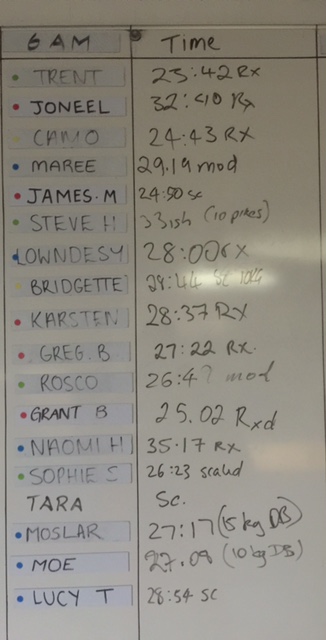 6 AM Time
TRENT 23:42 Rx
JONEEL 32:40 Rx
CAMO 24:43 RX
MAREE 29.19 mod
JAMES.M 24:50 sc
STEVE H 33ish (10 pikes)
LOWNDESY 28:00 rx
BRIDGETTE 28:44 SC 10KG
KARSTEN 28:37 RX
GREG.B 27:22 RX.
ROSCO mod
GRANT B 25.02 Rxd
NAOMI H 35.17 RX
SOPHIE S 26:23 scaled
TARA Sc.
MOSLAR 27:17 (15kg DB)
MOE 27.09 (10kg DB)
LUCY T 28:54 SC